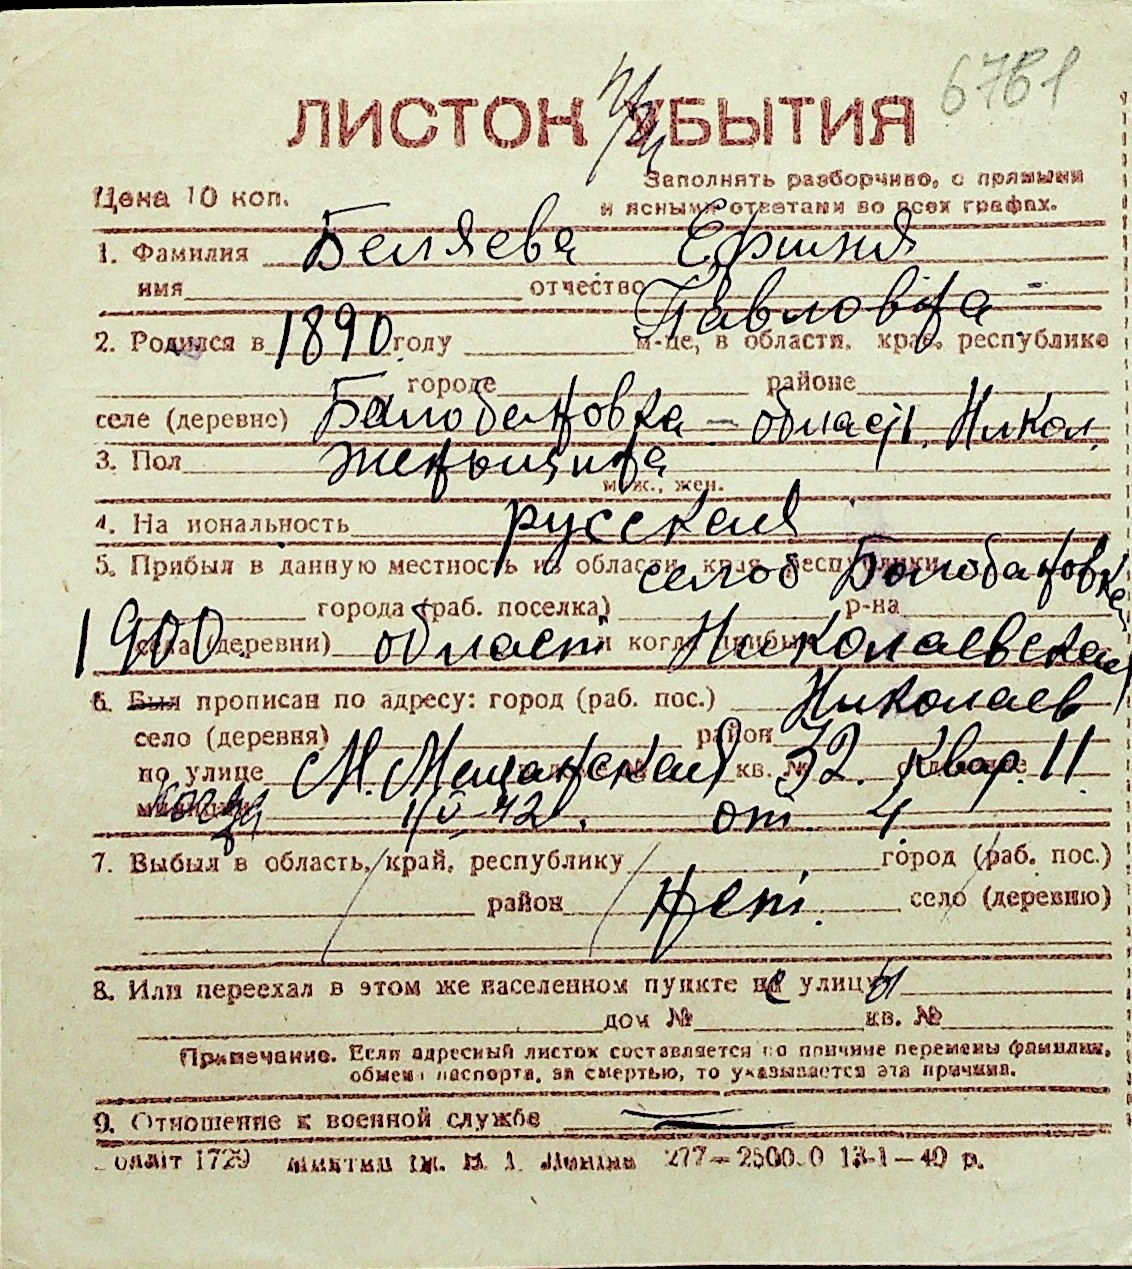 6761
ЛИСТОК УБЫТИЯ
Цена 10 коп.
Заполнять разборчиво, с прямыми
и ясными ответами во всех графах.
1. Фамилия Беляева Ефимия
имя отчество Павловна
2. Родился в 1890 году м-це, в области, крае, республике
городе районе
селе (деревне) Балобановка - област. Никол.
3. Пол Женьщина
муж., жен.
4. На иональность русская
5. Прибыл в данную местность из области, края, республики село Болобановка
города (раб. поселка) р-на
1900. села (деревни) и когда прибыл област Николаевская
6. Был прописан по адресу: город (раб. пос.) Николаев
село (деревня) район
по улице М. Мещанская 32. кв. № квар. 11 отделение
милиции когда 42 от. 4
7. Выбыл в область, край, республику город (раб. пос.)
район нет. село (деревню)
8. Или переехал в этом же населенном пункте на улицу
дом № кв. №
Примечание. Если адресный листок составляется по причине перемены фамилии,
обмена паспорта, за смертью, то указывается эта причина.
9. Отношение к военной службе
1729 277—2500.0 13-1—40 р.